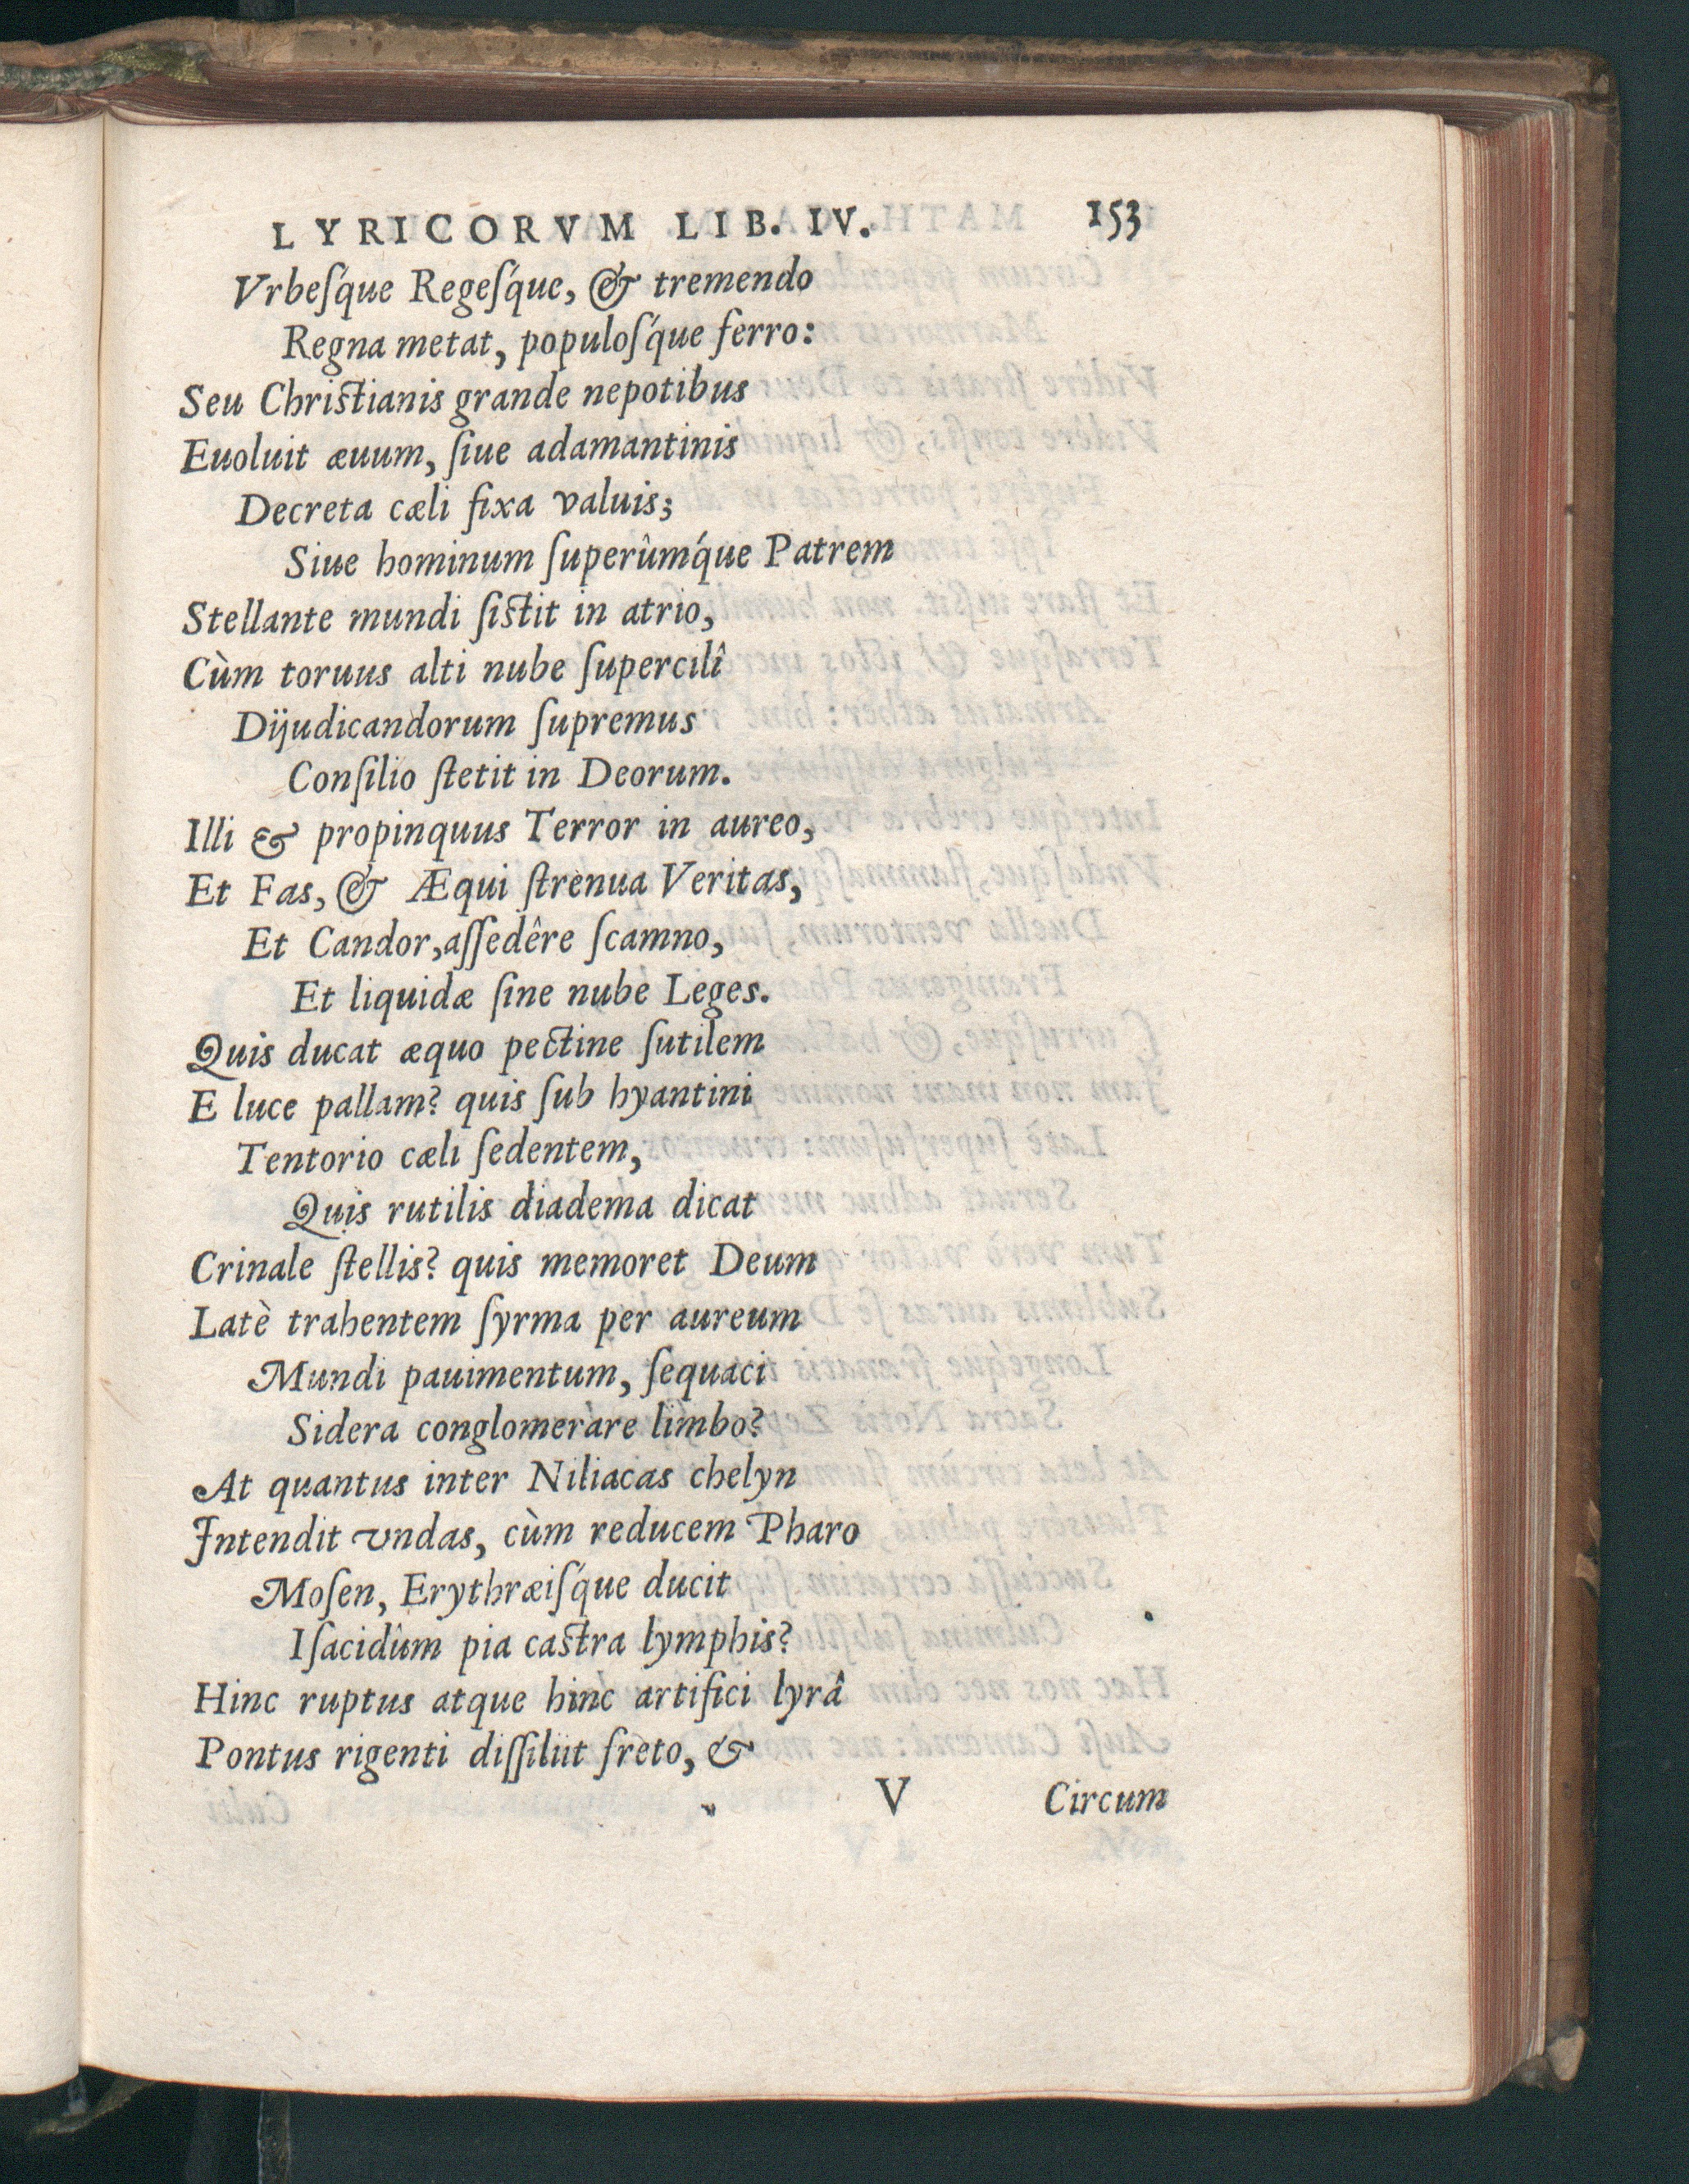 LYRICORVM LIB. IV. 153
Vrbeſq́ue Regeſq́ue, & tremendo
Regna metat, populoſq́ue ferro:
Seu Christianis grande nepotibus
Euoluit æuum, ſiue adamantinis
Decreta cæli fixa valuis;
Siue hominum ſuperûmq́ue Patrem
Stellante mundi ſistit in atrio,
Cùm toruus alti nube ſupercilî
Dijudicandorum ſupremus
Conſilio ſtetit in Deorum.
Illi & propinquus Terror in aureo,
Et Fas, & Æqui ſtrenua Veritas,
Et Candor, aſſedêre ſcamno,
Et liquidæ ſine nube Leges.
Quis ducat æquo pectine ſutilem
E luce pallam? quis ſub hyantini
Tentorio cæli ſedentem,
Quis rutilis diadema dicat
Crinale ſtellis? quis memoret Deum
Latè trahentem ſyrma per aureum
Mundi pauimentum, ſequaci
Sidera conglomerare limbo?
At quantus inter Niliacas chelyn
Intendit vndas, cùm reducem Pharo
Moſen, Erythræiſq́ue ducit
Iſacidûm pia castra lymphis?
Hinc ruptus atque hinc artifici lyrâ
Pontus rigenti diſſiliit freto, &
V Circum